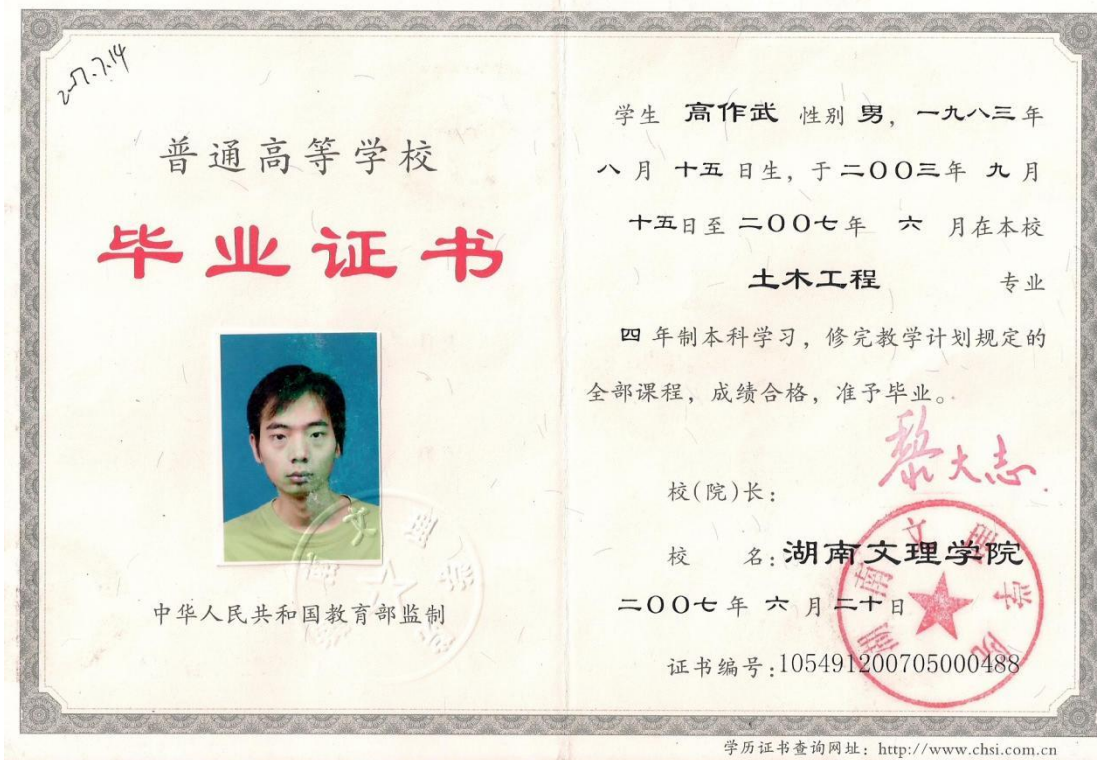 普通高等学校
毕业证书
中华人民共和国教育部监制
学生 高作武 性别 男，一九八三年
八 月 十五 日生，于二〇〇三年 九 月
十五日至 二〇〇七年 六 月在本校
土木工程 专业
四 年制本科学习，修完教学计划规定的
全部课程，成绩合格，准予毕业。
校(院)长：
黎大志
校 名：湖南文理学院
二〇〇七年 六 月二十日
湖南文理学院
证书编号：105491200705000488
学历证书查询网址：http://www.chsi.com.cn